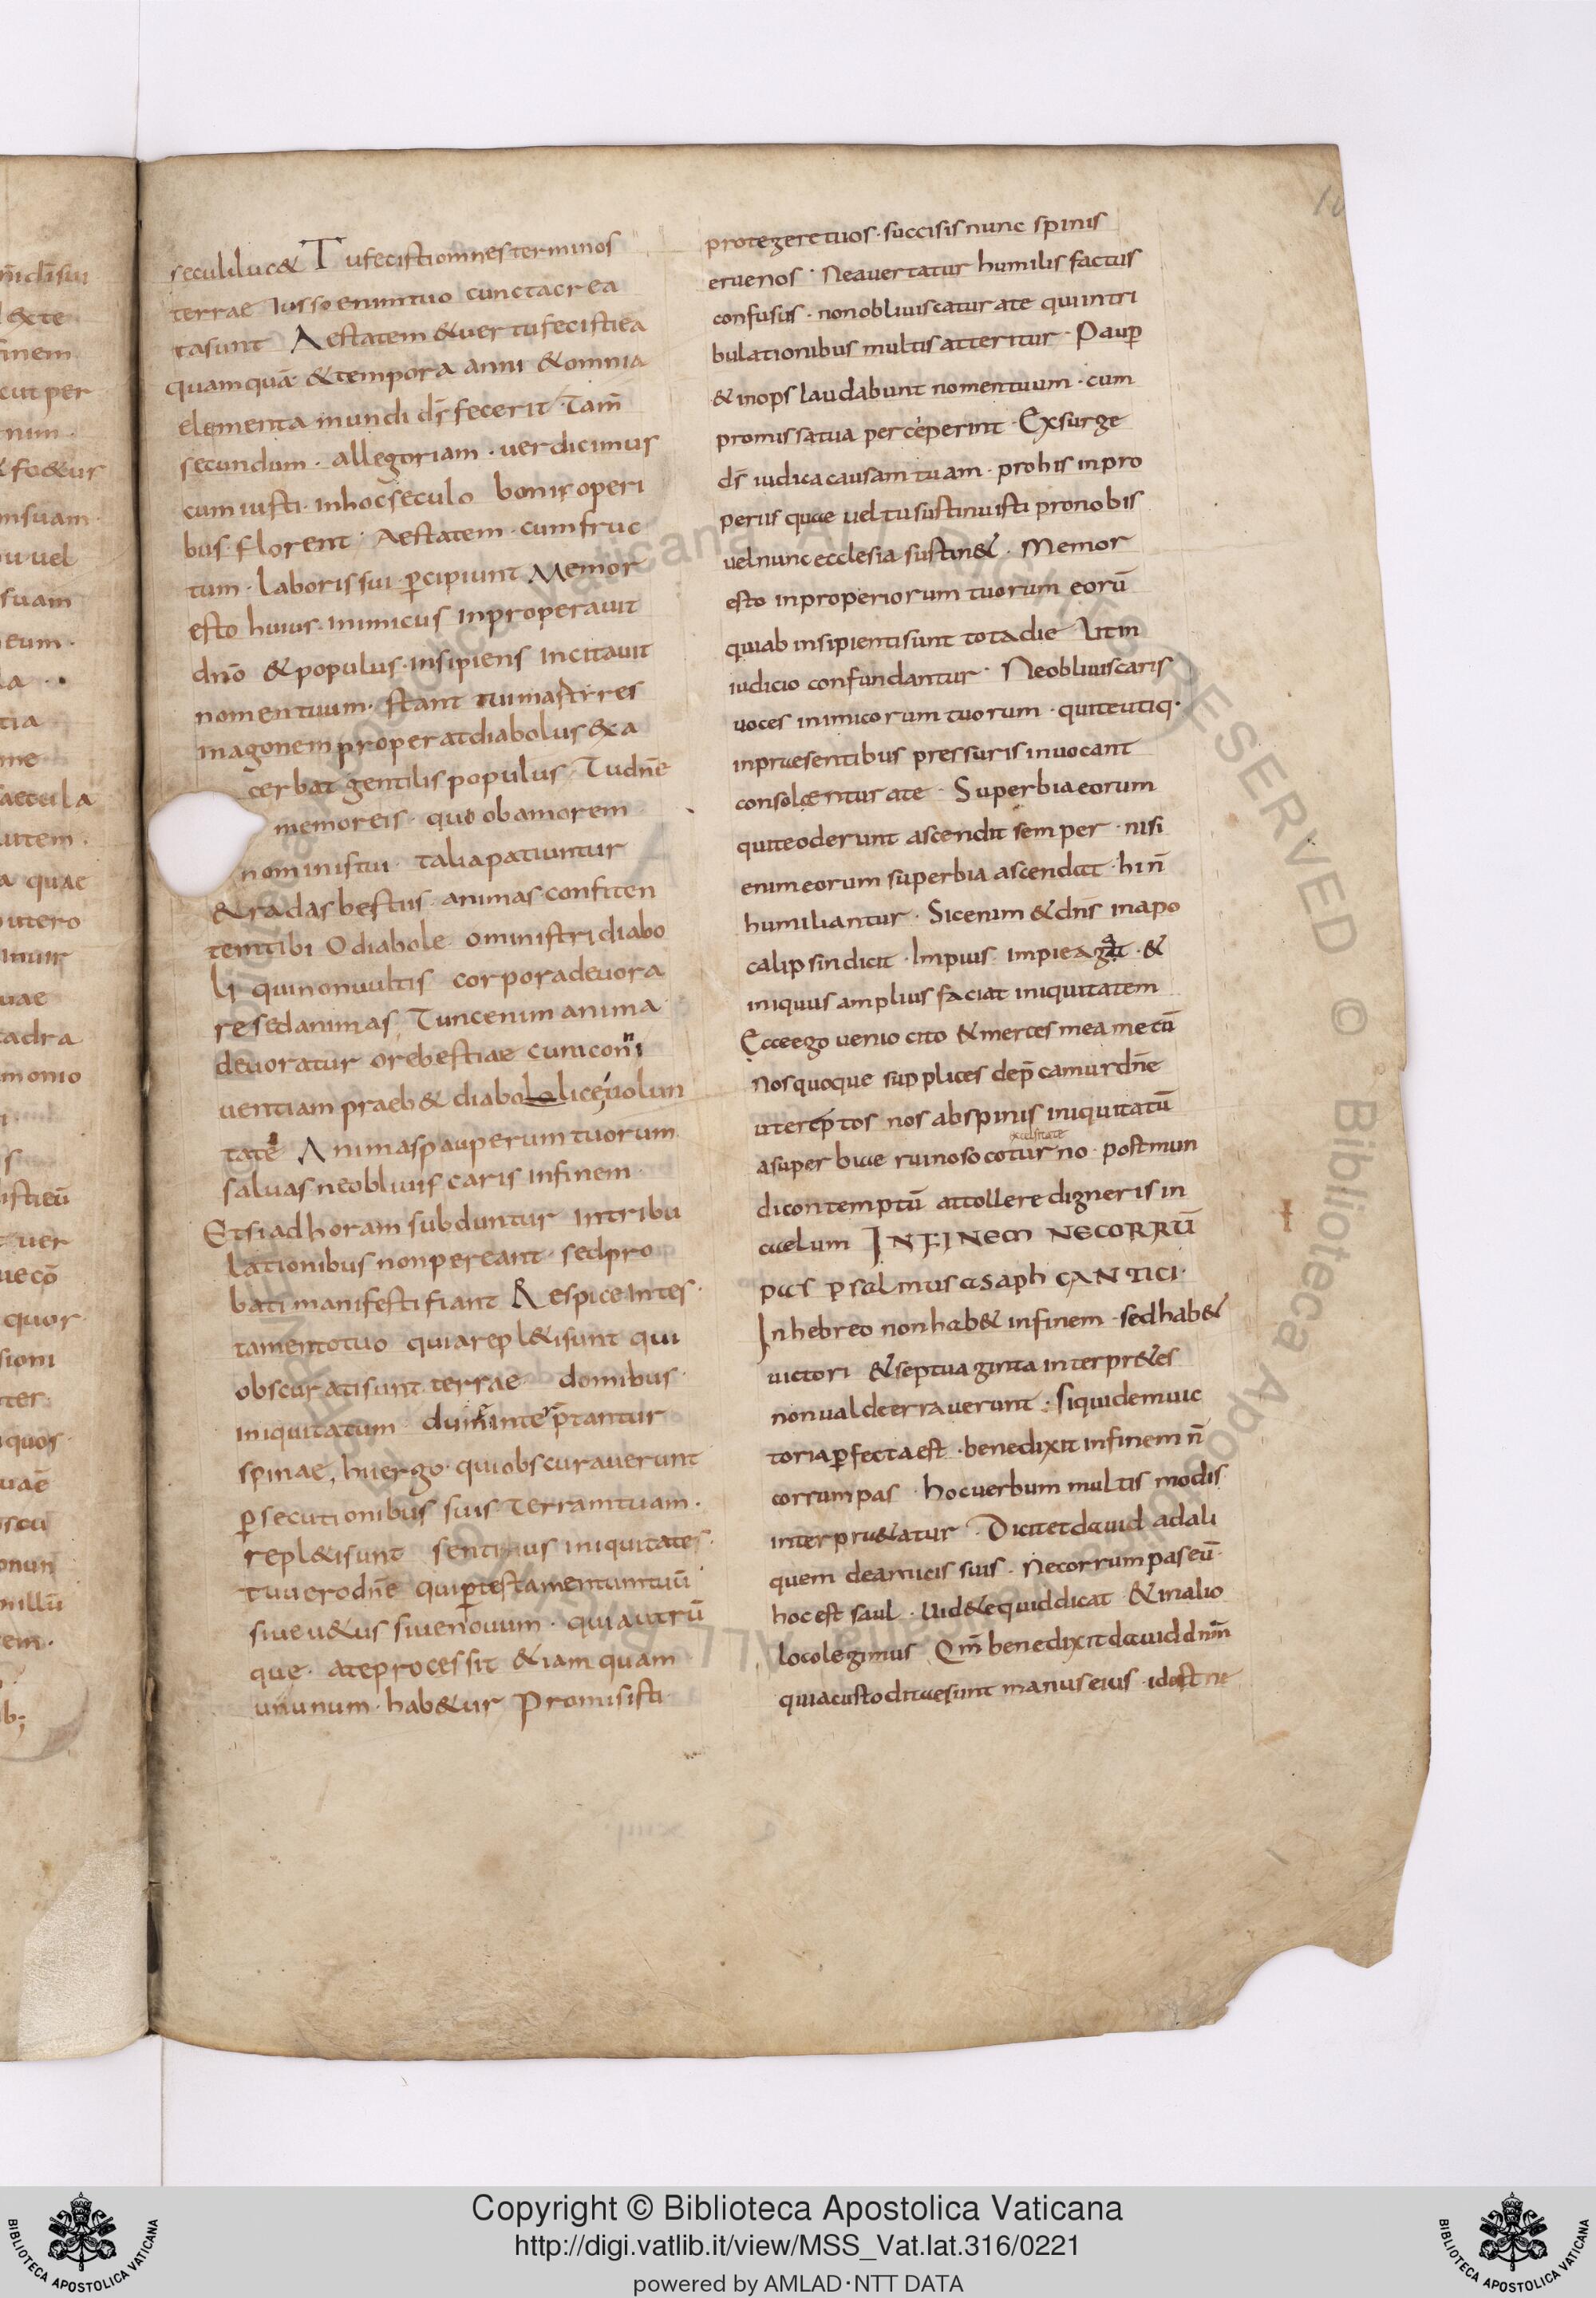 seculi luc& Tu fecisti omnes terminos
terrae Iusso enim tuo cuncta crea
ta sunt Aestatem & uer tu fecisti ea
quam quā & tempora anni & omnia
elementa mundi d̄s fecerit · Tam̄
secundum · allegoriam · uer dicimus
cum iusti · in hoc seculo bonis operi
bus · florent · Aestatem · cum fruc
tum · laboris sui · p̱cipiunt Memor
esto huius · inimicus inproperauit
dn̄o & populus · insipiens incitauit
nomen tuum · stant tui martires
in agonem properat diabolus & exa
cerbat gentilis populus · Tu dn̄e
memor eis · quo ob amorem
nominis tui · talia patiuntur
& radas bestiis · animas · confiten
tem tibi O diabole o ministri diabo
li qui non uultis corpora deuora
re sed animas, Tunc enim anima
deuoratur ore bestiae cum conni
uentiam praeb& diabolice uolun
tate Animas pauperum tuorum
saluas ne obliuiscaris in finem ·
Etsi ad horam subduntur in tribu
lationibus non pereant · sed pro
bati manifesti fiant Respice in tes ·
tamento tuo quia repl&i sunt qui
obscurati sunt terrae domibus ·
iniquitatum · dum interp̄tantur
spinae, hii ergo · qui obscurauerunt
p̱secutionibus suis terram tuam ·
repl&i sunt sentibus iniquitates ·
Tu uero dn̄e qui p̱ testamentum tuū
siue u&us siue nouum · qui a utrū
que · a te processit &iam quam
unum · hab&ur Promisisti
protegere tuos · succisis nunc spinis
erue nos · Ne auertatur humilis factus
confusus · non obliuiscatur a te qui in tri
bulationibus multis atteritur · Paup̱
& inops laudabunt nomen tuum · cum
promissa tua perceperint · Exsurge
d̄s iudica causam tuam · pro his inpro
periis quae uel tu sustinuisti pro nobis
uel nunc ecclesia sustin& · Memor
esto inproperiorum tuorum eorū
qui ab insipienti sunt tota die Ut in
iudicio confundantur · Ne obliuiscaris
uoces inimicorum tuorum · qui te utiq·
in praesentibus pressuris inuocant
consolentur a te · Superbia eorum
qui te oderunt ascendit semper · nisi
enim eorum superbia ascendat · hi n̄
humiliantur · Sic enim & dn̄s in apo
calipsin dicit · Impius · impie agat · &
iniquus amplius faciat iniquitatem
Ecce ego uenio cito & merces mea mecū
Nos quoque supplices dep̄camur dn̄e
ut ereptos nos ab spinis iniquitatū
exulsitate
a superbiae ruinoso coturno · post mun
di contemptū attollere digneris in
caelum IN FINEM NE CORRŪ
pas psalmus asaph CANTICI ·
In hebreo non hab& in finem · sed hab&
uictori & septuaginta interpr&es
non ualde errauerunt · Siquidem uic
toria p̱fecta est · bene dixit in finem n̄
corrumpas · hoc uerbum multis modis
interpraeatur · Dicit et dauid ad ali
quem de amicis suis · Ne corrumpas eū ·
hoc est saul · Uid&e quid dicat & in alio
loco legimus Qm̄ benedixit dauid dnm̄
quia custoditae sunt manus eius · id est ne
Copyright © Biblioteca Apostolica Vaticana
http://digi.vatlib.it/view/MSS_Vat.lat.316/0221
powered by AMLAD·NTT DATA